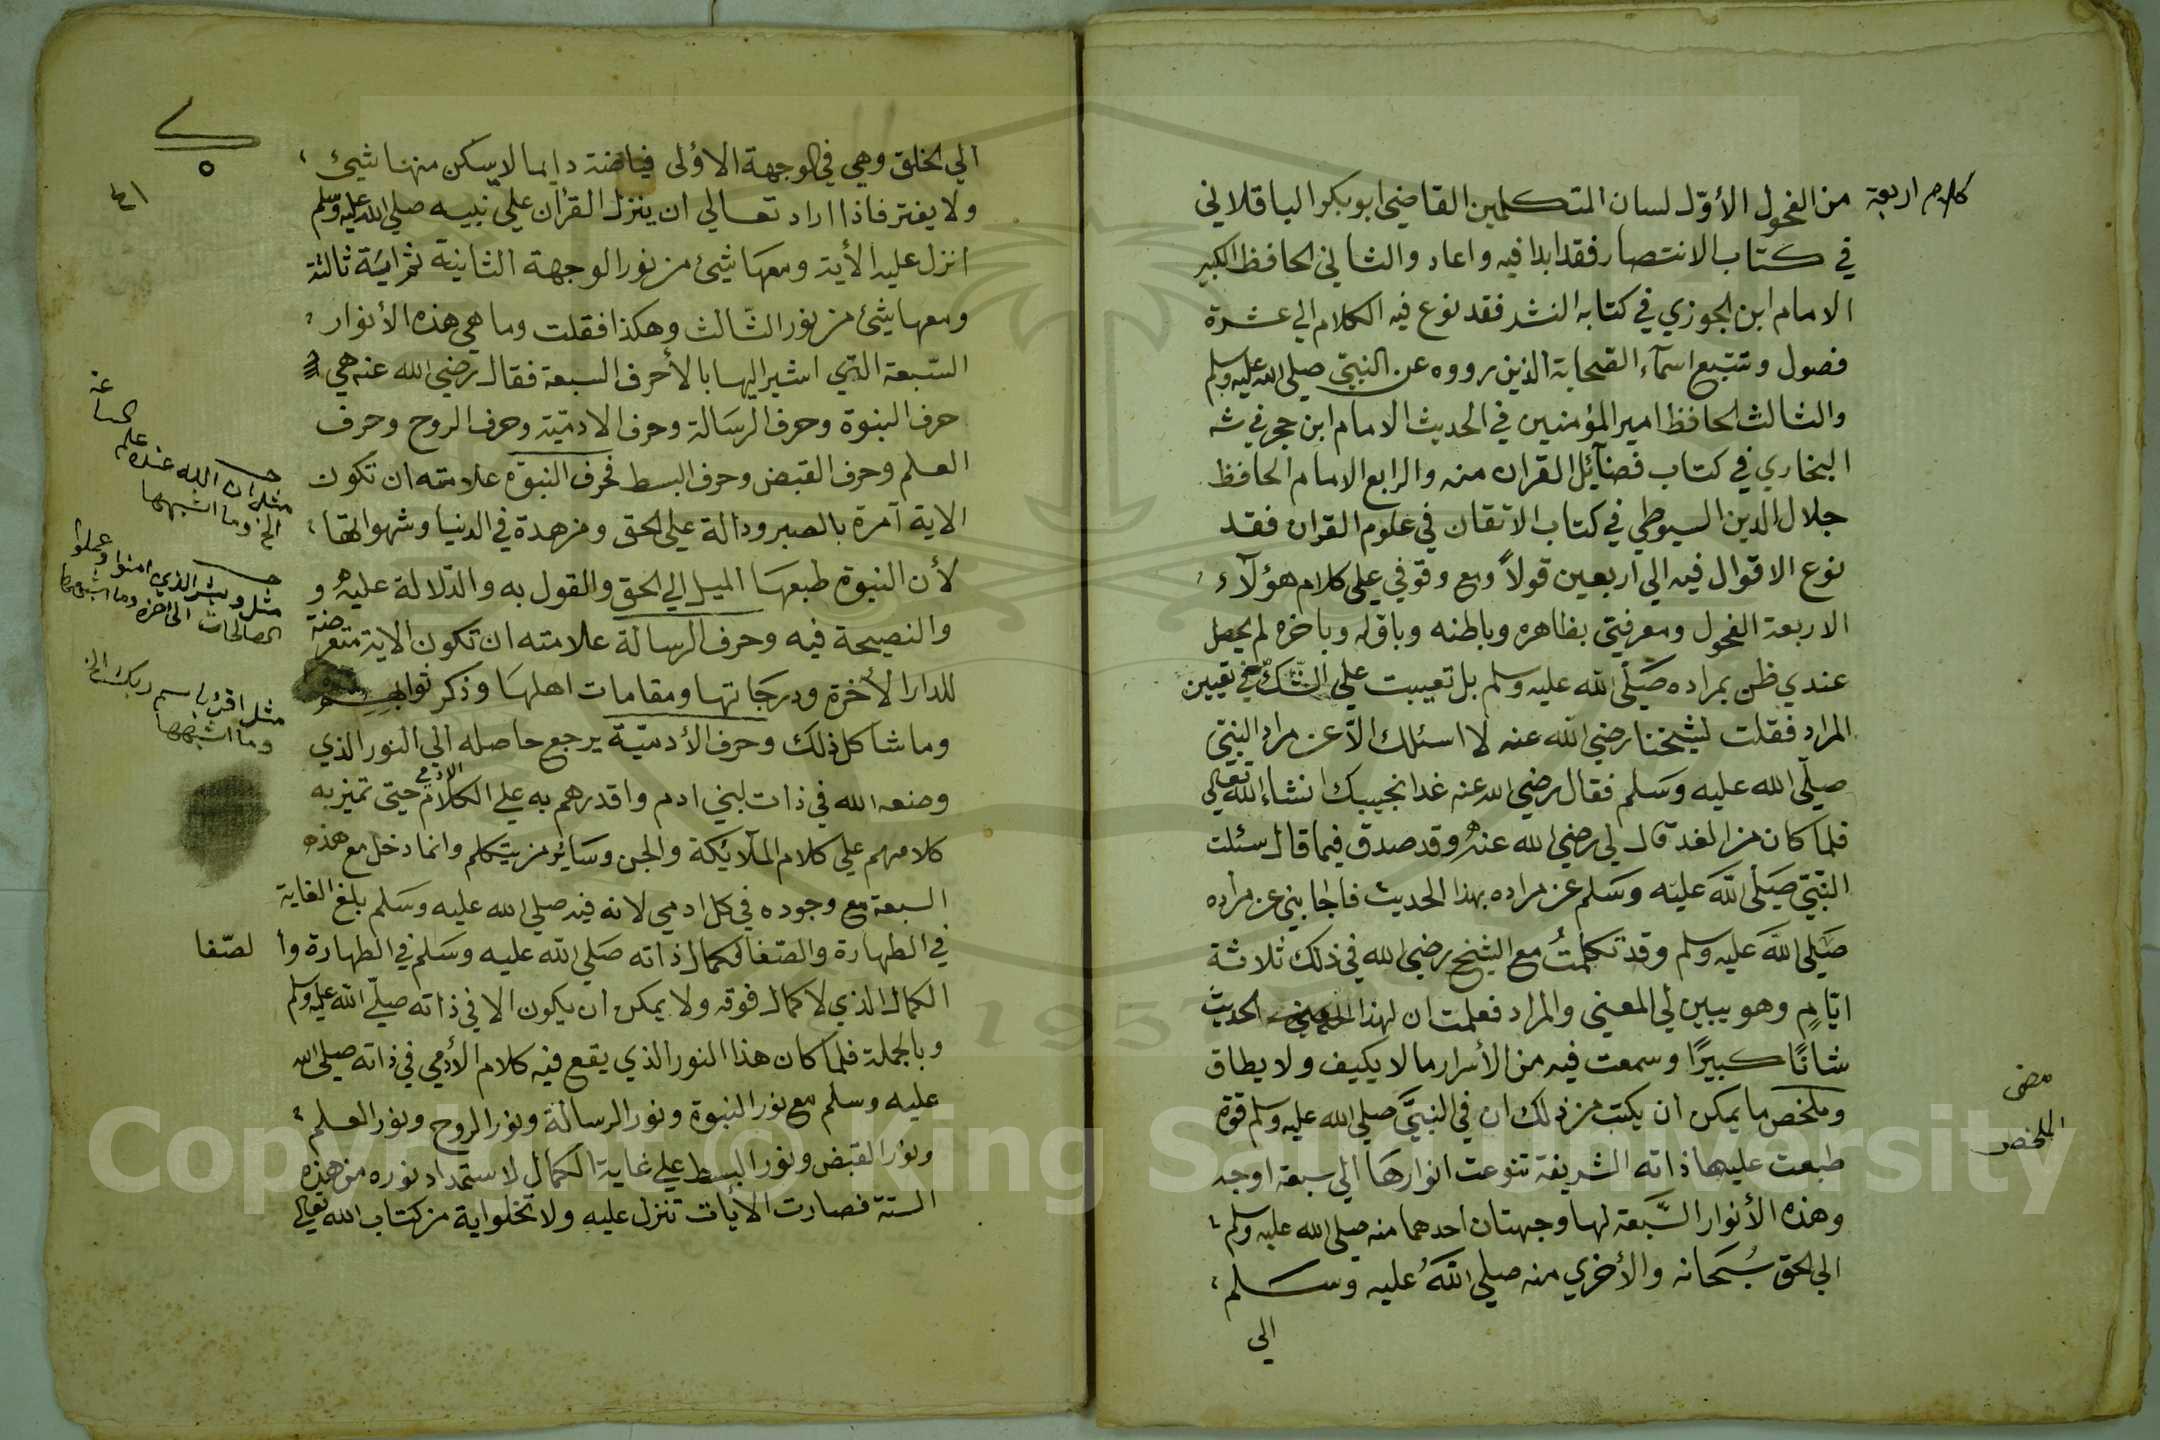 كلام اربعة من الفحول الأوّل لسان المتكلمين القاضي ابو بكر الباقلاني
في كتاب الانتصار فقد ابدا فيه واعاد والثاني الحافظ الكبير
الامام ابن الجوزي في كتابه النشر فقد نوع فيه الكلام الي عشرة
فصول وتتبع اسمآء الصحابة الذين رووه عن النبيّ صلي الله عليه وسلم
والثالث الحافظ امير المؤمنين في الحديث الامام ابن حجر في شه
البخاري في كتاب فضآئل القران منه والرابع الامام الحافظ
جلال الدين السيوطي في كتاب الاتقان في علوم القران فقد
نوع الاقوال فيه الي اربعين قولاً ومع وقوفي علي كلام هؤلآء
الاربعة الفحول ومعرفتي بظاهره وباطنه وباوله وباخره لم يحصل
عندي ظن بمراده صَلّي الله عليه وسلم بل تعيبت علي الشك في تعيين
المراد فقلت لشيخنا رضي الله عنه لا اسئلك الاّ عن مراد النبيّ
صلّي الله عليه وسَلم فقال رضي الله عنه غدا نجيبك انشاء الله تعالي
فلما كان من الغد قال لي رضي الله عنه وقد صدق فيما قال سئلت
النّبيّ صَلّي اللّه عليه وسَلم عن مراده بهذا الحديث فاجابني عن مراده
صَلي اللّه عليه وسلم وقد تكلمتُ مع الشيخ رضي الله في ذلك ثلاثة
ايّامٍ وهو يبين لي المعني والمراد فعلمت ان لهذا الحديث
شانًا كبيرًا وسمعت فيه من الأسرار ما لا يكيف ولا يطاق
وملخص ما يمكن ان يكتب من ذلك ان في النبيّ صلي الله عليه وسلم قوة
طبعت عليها ذاته الشريفة تنوعت انوارها الي سبعة اوجه
وهذه الأنوار السَّبعة لها وجهتان احدهما منه صلي الله عليه وسلم
الي الحق سُبحانه والأخري منه صلي اللّهُ عليه وسلم
الي
الملخص
٤١
الي الخلق وهي في الوجهة الاؤلى فياضة دايما لا يسكن منها شيئ
ولا يفتر فاذا اراد تعالي ان ينزل القران علي نبيه صلي الله عليه وسلم
انزل عليه الأية ومعها شيئ من نور الوجهة الثانية ثم اية ثالثة
ومعها شيئ من نور الثّالث وهكذا فقلت وما هي هذه الأنوار
السّبعة التي اشير اليها بالأحرف السبعة فقال رضي الله عنه هي
حرف النبوة وحرف الرسَالة وحرف الادميّة وحرف الروح وحرف
العلم وحرف القبض وحرف البسط فحرف النبوّة علامته ان تكون
الاية آمرة بالصبر ودالة علي الحق ومزهدة في الدنيا وشهواتها
لأن النبوة طبعهَا الميل الي الحق والقول به والدّلالة عليه و
والنصيحة فيه وحرف الرسالة علامته ان تكون الاية متعرضة
للدار الأخرة ودرجَاتها ومقامات اهلهَا وذكر ثوابهم
وما شاكل ذلك وحرف الأدميّة يرجع حاصله الي النور الذي
وضعه الله في ذات لبني ادم واقدرهم به علي الكلام الادمي حتي تميز به
كلامهم علي كلام الملآئكة والجن وسَاير من يتكلم وانما دخل مع هذه
السبعة مع وجوده في كل ادمي لانه فيه صلي الله عليه وسَلم بلغ الغاية
في الطهارة والصّفا لكمال ذاته صَلي اللّه عليه وسَلم في الطهارة وا لصّفا
الكمال الذي لا كمال فوقه ولا يمكن ان يكون الا في ذاته صلّي اللّه عليه وسلم
وبالجملة فلما كان هذا النور الذي يقع فيه كلام الأدمي في ذاته صلي الله
عليه وسلم مع نور النبوة ونور الرسالة ونور الروح ونور العلم
ونور القبض ونور البسط علي غاية الكمال لاستمداد نوره من هذه
الستة فصارت الأيات تنزل عليه ولا تخلوا اية من كتاب الله تعالي
مثل ان الله عنده علم الساعة
الخ وما اشبهها
مثل وبشر الذين امنوا وعملوا
الصالحات الي اخره وما اشبهها
مثل اقرا باسم ربك الخ
وما اشبهها
1957
Copyright © King Saud University